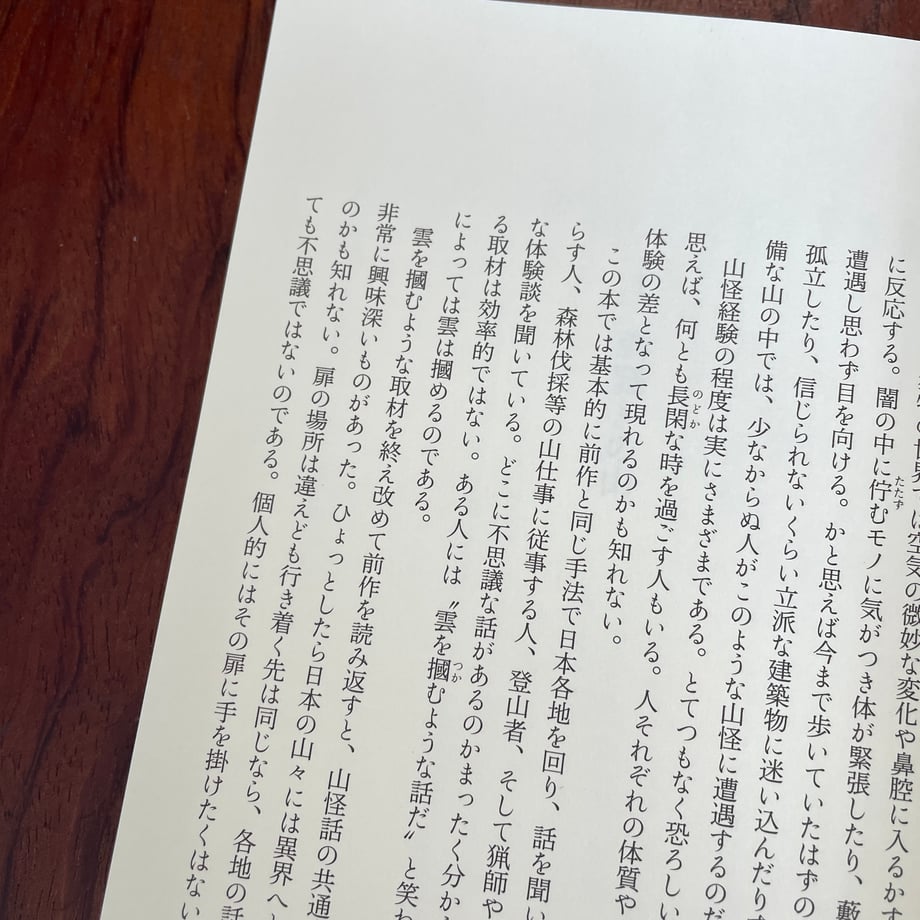 は空気の微妙な変化や鼻腔に入るかす
に反応する。闇の中に佇むモノに気がつき体が緊張したり、藪
遭遇し思わず目を向ける。かと思えば今まで歩いていたはずの
孤立したり、信じられないくらい立派な建築物に迷い込んだりす
備な山の中では、少なからぬ人がこのような山怪に遭遇するのだ
山怪経験の程度は実にさまざまである。とてつもなく恐ろしい
思えば、何とも長閑な時を過ごす人もいる。人それぞれの体質や
体験の差となって現れるのかも知れない。
この本では基本的に前作と同じ手法で日本各地を回り、話を聞い
らす人、森林伐採等の山仕事に従事する人、登山者、そして猟師や
な体験談を聞いている。どこに不思議な話があるのかまったく分から
る取材は効率的ではない。ある人には〝雲を摑むような話だ〟と笑わ
によっては雲は摑めるのである。
雲を摑むような取材を終え改めて前作を読み返すと、山怪話の共通
非常に興味深いものがあった。ひょっとしたら日本の山々には異界へと
のかも知れない。扉の場所は違えども行き着く先は同じなら、各地の話
ても不思議ではないのである。個人的にはその扉に手を掛けたくはない